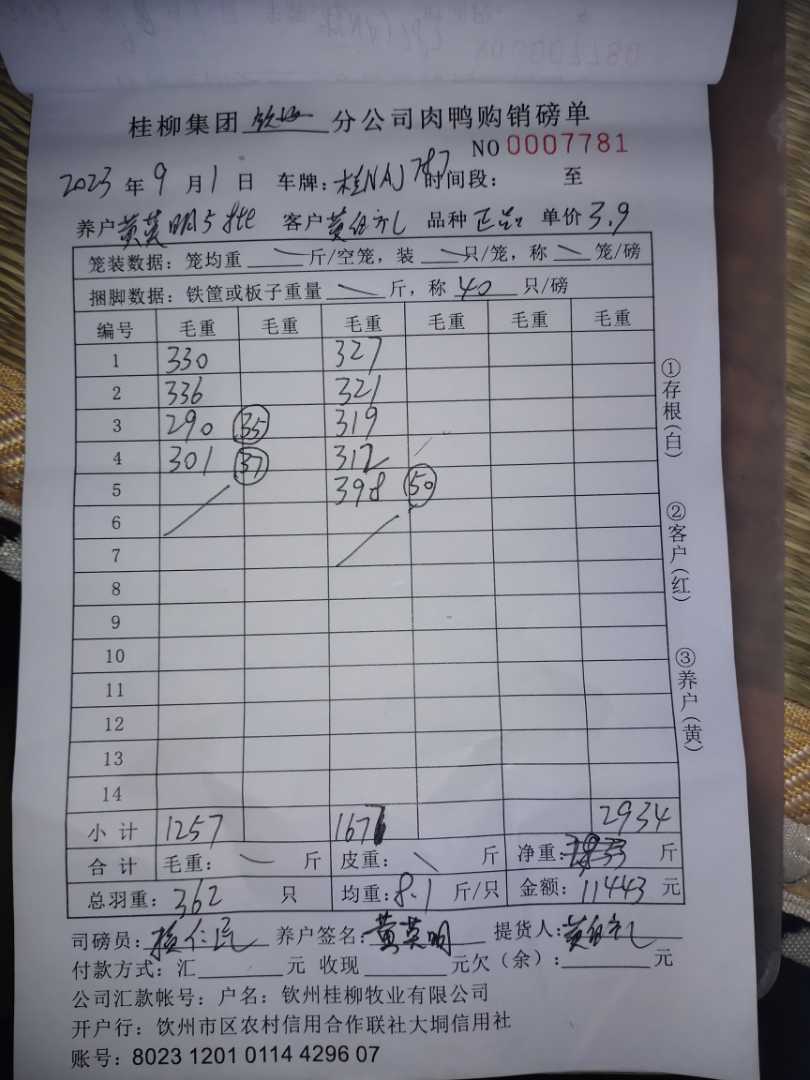 桂柳集团钦州分公司肉鸭购销磅单
NO 0007781
2023年9月1日 车牌:桂NAJ787 时间段: 至
养户黄英明5批 客户黄伯礼 品种正品 单价3.9
笼装数据:笼均重 斤/空笼,装 只/笼,称 笼/磅
捆脚数据:铁筐或板子重量 斤,称 40 只/磅
编号 毛重 毛重 毛重 毛重 毛重 毛重
1 330 327
2 336 321
3 290 35 319
4 301 37 312
5 398 50
6
7
8
9
10
11
12
13
14
小计 1257 1676 2934
合计 毛重: 斤 皮重: 斤 净重: 斤
总羽重:362 只 均重:8.1 斤/只 金额:11443 元
司磅员: 养户签名:黄英明 提货人:黄伯礼
付款方式:汇 元 收现 元欠(余): 元
公司汇款帐号:户名:钦州桂柳牧业有限公司
开户行:钦州市区农村信用合作联社大垌信用社
账号:8023 1201 0114 4296 07
①存根(白)
②客户(红)
③养户(黄)